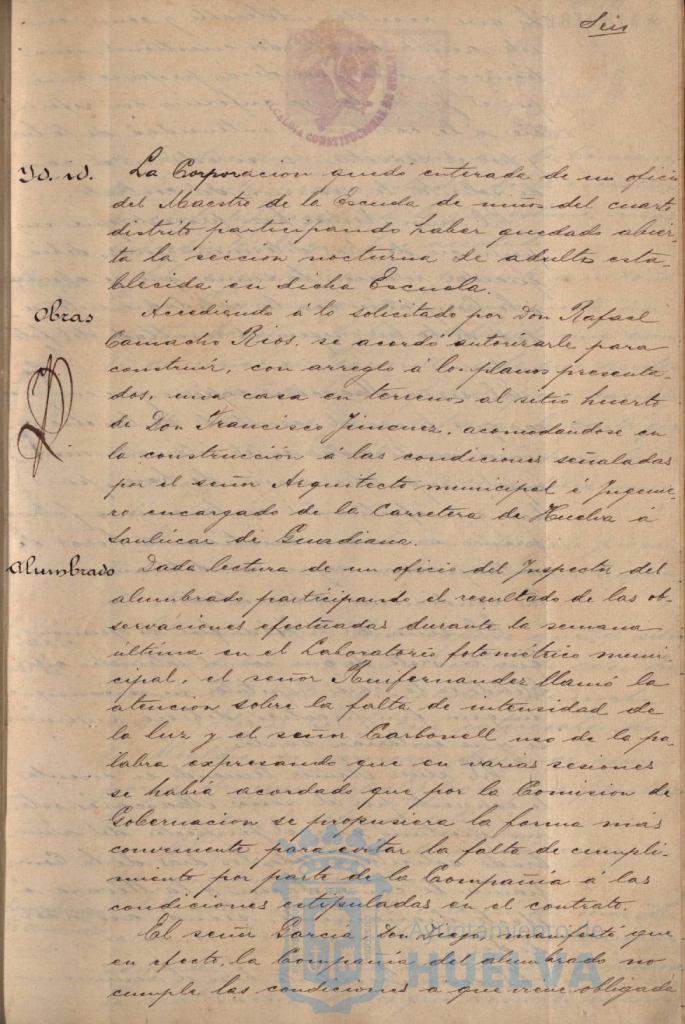 Seis
ALCALDIA CONSTITUCIONAL DE HUELVA
Yd. id. La Corporacion quedó enterada de un oficio
del Maestro de la Escuela de niños del cuarto
distrito participando haber quedado abier-
ta la sección nocturna de adultos esta-
blecida en dicha Escuela.
Obras Accediendo á lo solicitado por Don Rafael
Camacho Rios, se acordó autorizarle para
construir, con arreglo á los planos presenta-
dos, una casa en terrenos al sitio huerto
de Don Francisco Jimenez, acomodándose en
la construcción á las condiciones señaladas
por el señor Arquitecto municipal é Ingenie-
ro encargado de la Carretera de Huelva á
Sanlúcar de Guadiana.
Alumbrado Dada lectura de un oficio del Inspector del
alumbrado participando el resultado de las ob-
servaciones efectuadas durante la semana
última en el Laboratorio fotométrico muni-
cipal, el señor Ruifernandez llamó la
atencion sobre la falta de intensidad de
la luz y el señor Carbonell usó de la pa-
labra expresando que en varias sesiones
se habia acordado que por la Comision de
Gobernacion se propusiera la forma más
conveniente para evitar la falta de cumpli-
miento por parte de la Compañia á las
condiciones estipuladas en el contrato.
El señor Garcia Don Diego, manifestó que
en efecto, la Compañia del alumbrado no
cumple las condiciones á que viene obligada
Ayuntamiento de
HUELVA